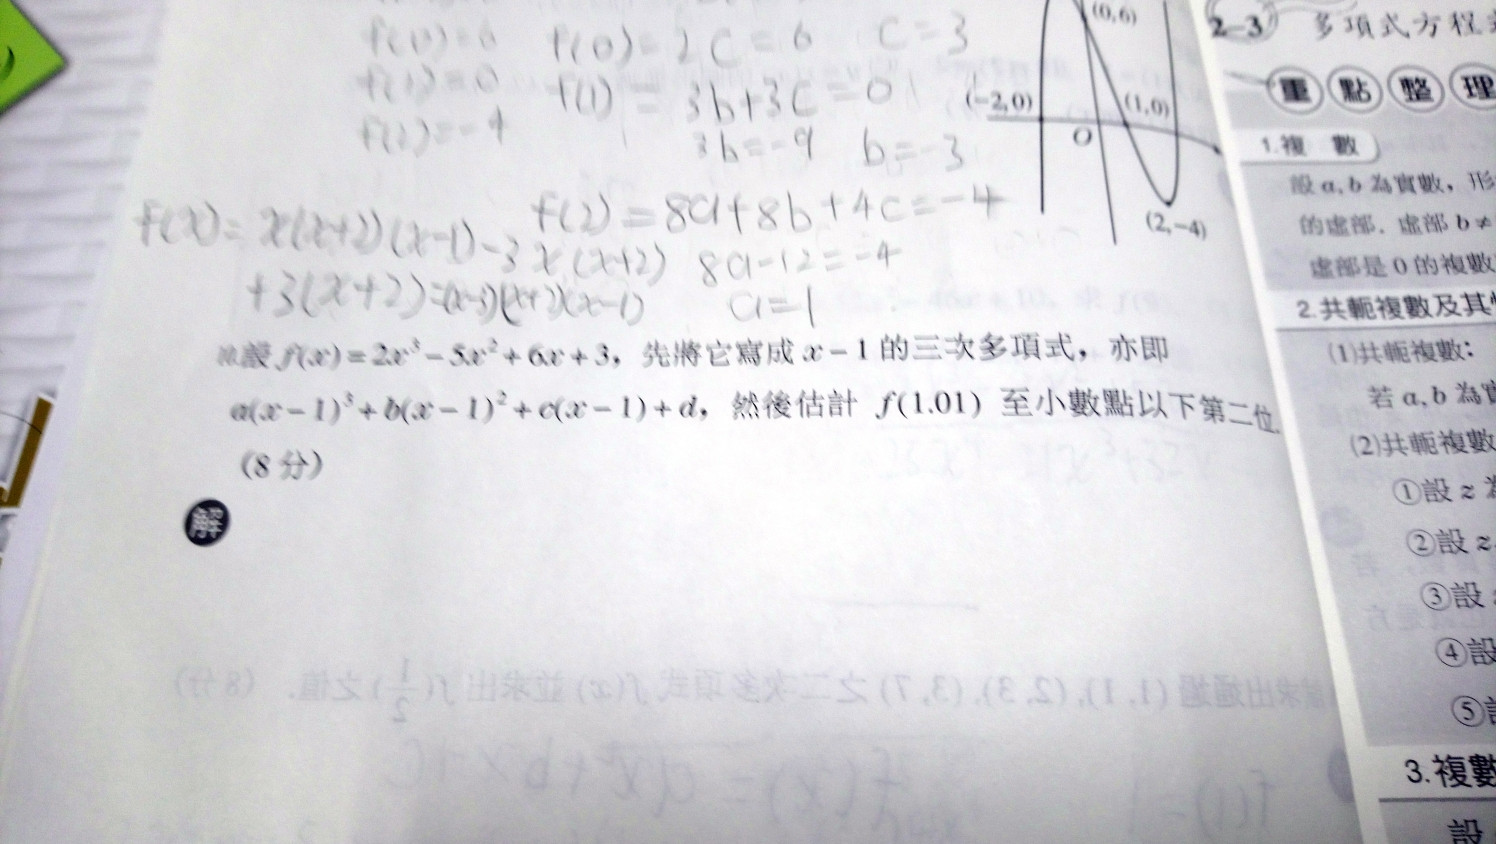 f(0)=6 f(0)=2C=6 C=3
f(1)=0 f(1)=3b+3C=0
f(2)=-4 3b=-9 b=-3
f(2)=8a+8b+4c=-4
f(x)=x(x+2)(x-1)-3x(x+2) 8a-12=-4
+3(x+2)=(x-3)(x+2)(x-1) a=1
(0,6)
(-2,0) (1,0)
O
(2,-4)
設 f(x)=2x³-5x²+6x+3，先將它寫成 x-1 的三次多項式，亦即
a(x-1)³+b(x-1)²+c(x-1)+d，然後估計 f(1.01) 至小數點以下第二位.
(8 分)
解
2-3 多項式方程
重點整理
1.複 數
設 a, b 為實數，形
的虛部．虛部 b≠
虛部是 0 的複數
2.共軛複數及其
(1)共軛複數：
若 a, b 為
(2)共軛複數
①設 z
②設 z
③設
④設
⑤
3.複數
設
求出通過 (1, 1), (2, 3), (3, 7) 之二次多項式 f(x) 並求出 f(1/2) 之值. (8分)
f(x)=ax²+bx+C
f(1)=1